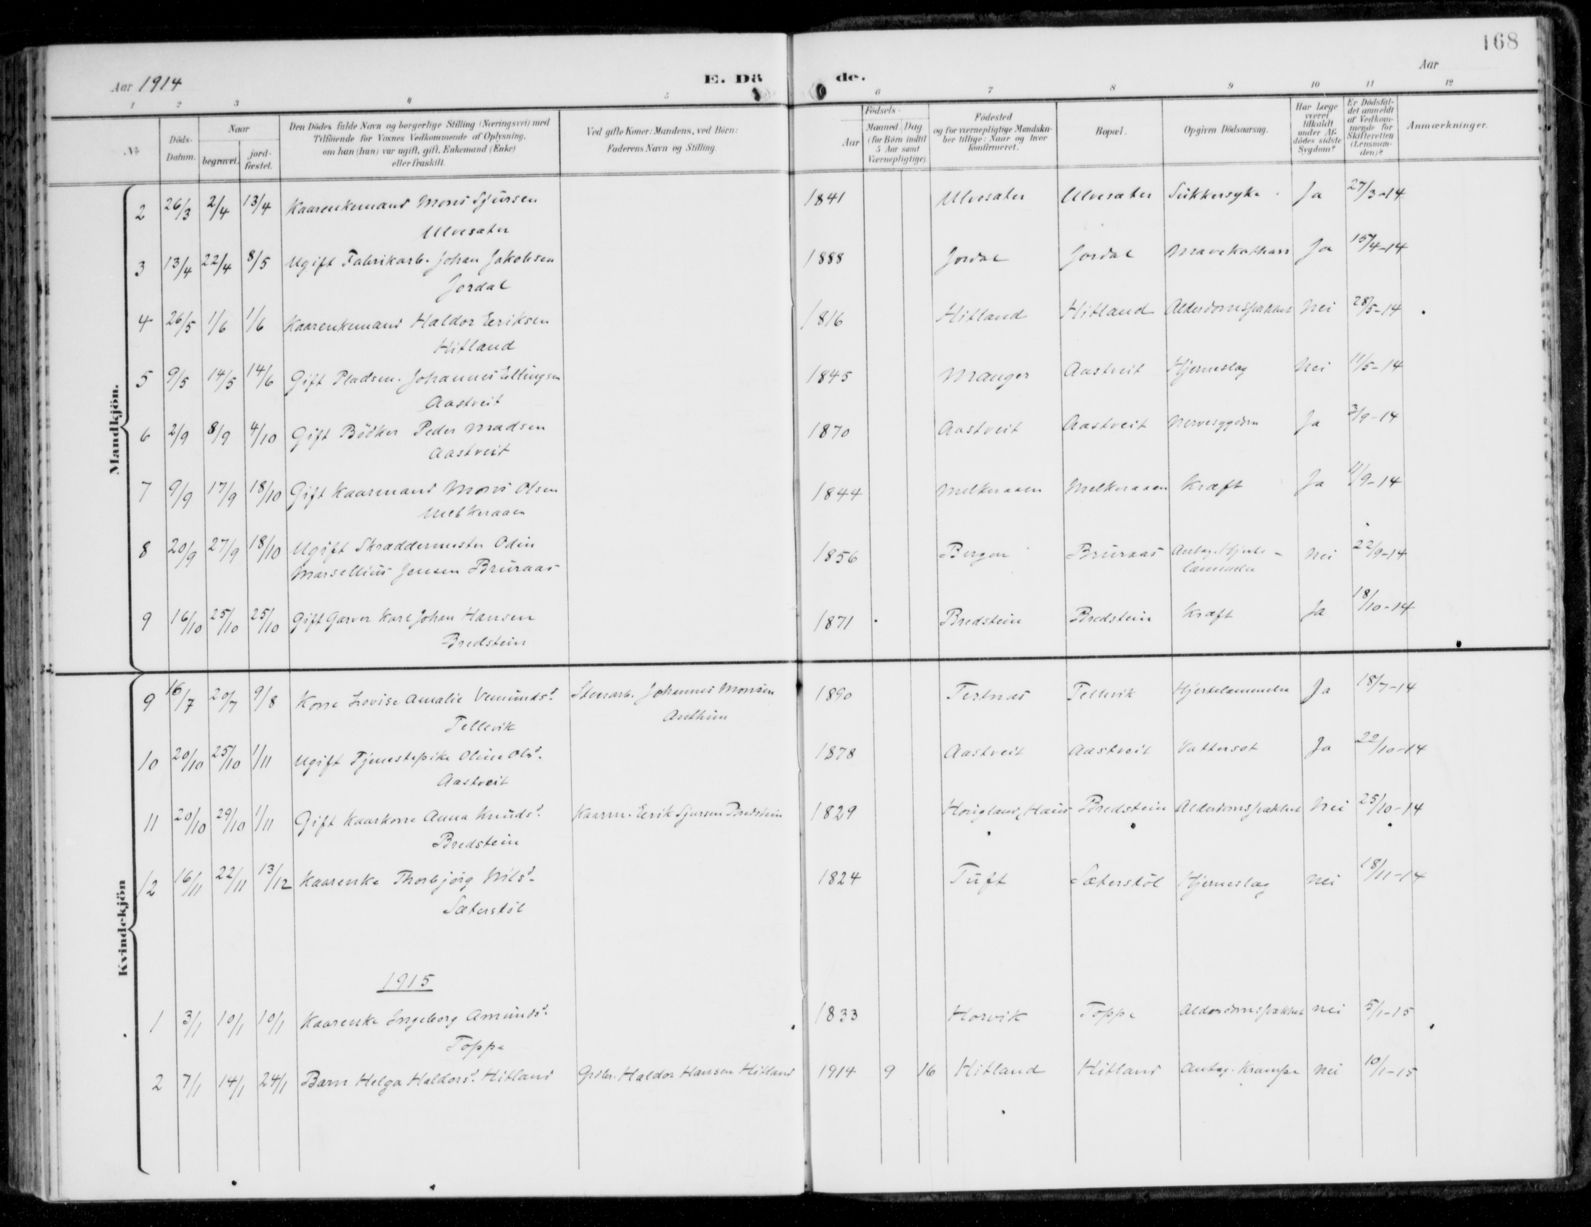 168
Aar 1914 E. Dö de. Aar
1 2 3 4 5 6 7 8 9 10 11 12
№
Döds-Datum.
Naar
begravet.
jord-fæstet.
Den Dödes fulde Navn og borgerlige Stilling (Næringsvei) med
Tilföiende for Voxnes Vedkommende af Oplysning,
om han (hun) var ugift, gift, Enkemand (Enke)
eller fraskilt.
Ved gifte Koner: Mandens, ved Börn:
Faderens Navn og Stilling.
Födsels-
Aar
Maaned Dag
(for Börn indtil
5 Aar samt
Værnepligtige)
Födested
og for værnepligtige Mandskaber tillige: Naar og hvor
konfirmeret.
Bopæl.
Opgiven Dödsaarsag.
Har Læge
været
tilkaldt
under Afdödes sidste
Sygdom?
Er Dödsfaldet anmeldt
af Vedkommende for
Skifteretten
(Lensmanden)?
Anmærkninger.
Mandkjön.
2 26/3 2/4 13/4 Kaarenkemand Mons Sjursen 1841 Ulvesæter Ulvesæter Sukkersyke Ja 27/3-14
Ulvesæter
3 13/4 22/4 8/5 Ugift Fabrikarb. Johan Jakobsen 1888 Jordal Jordal Mavekatharr Ja 15/4-14
Jordal
4 26/5 1/6 1/6 Kaarenkemand Haldor Eriksen 1816 Hitland Hitland Alderdomssvakhet Nei 28/5-14
Hitland
5 9/5 14/5 14/6 Gift Pladsm. Johannes Ellingsen 1845 Manger Aastveit Hjerneslag Nei 11/5-14
Aastveit
6 2/9 8/9 4/10 Gift Bödker Peder Madsen 1870 Aastveit Aastveit Nervesygdom Ja 3/9-14
Aastveit
7 9/9 17/9 18/10 Gift Kaarmand Mons Olsen 1844 Melkeraaen Melkeraaen Kræft Ja 11/9-14
Melkeraaen
8 20/9 27/9 18/10 Ugift Skræddermester Odin 1856 Bergen Bruraas Antag. Hjerte- Nei 22/9-14
Marsellius Jensen Bruraas lammelse
9 16/10 25/10 25/10 Gift Garver Karl Johan Hansen 1871 Bredstein Bredstein Kræft Ja 18/10-14
Bredstein
Kvindekjön
9 16/7 20/7 9/8 Kone Lovise Amalie Vemunds? Johannes Monsen 1890 Tertnæs Tellevik Hjertelammelse Ja 18/7-14
Tellevik
10 20/10 25/10 1/11 Ugift Tjenestepike Oline Olsd. 1878 Aastveit Aastveit Vattersot Ja 22/10-14
Aastveit
11 20/10 29/10 1/11 Gift Kaarkone Anna Knudsd. Kaarm. Erik Sjursen Bredstein 1829 Hougland, Haus Bredstein Alderdomssvakhet Nei 25/10-14
Bredstein
12 16/11 22/11 13/12 Kaarenke Thorbjörg Nilsd. 1824 Tuft Sæterstöl Hjerneslag Nei 18/11-14
Sæterstöl
1915
1 3/1 10/1 10/1 Kaarenke Ingeborg Amundsd. 1833 Horvik Toppe Alderdomssvakhet Nei 5/1-15
Toppe
2 7/1 14/1 24/1 Barn Helga Haldorsd. Hitland Grdbr. Haldor Hansen Hitland 1914 9 16 Hitland Hitland Antag. Krampe Nei 10/1-15